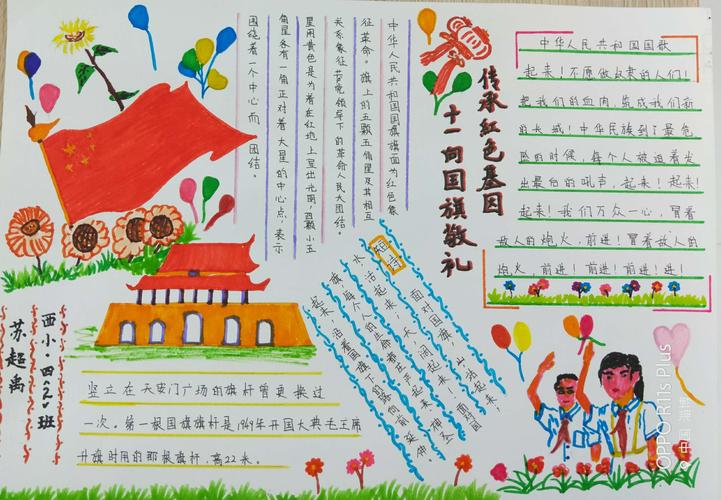 中华人民共和国国旗旗面为红色象
征革命。旗上的五颗五角星及其相互
关系象征共产党领导下的革命人民大团结。
星用黄色是为着在红地上显出光明,四颗小五
角星各有一角正对着大星的中心点,表示
围绕着一个中心而团结。
传承红色基因
十一向国旗敬礼
中华人民共和国国歌
起来!不愿做奴隶的人们!
把我们的血肉,筑成我们新
的长城!中华民族到了最危
险的时候,每个人被迫着发
出最后的吼声,起来!起来!
起来!我们万众一心,冒着
敌人的炮火,前进!冒着敌人的
炮火,前进!前进!前进!进!
短诗
面对国旗,山站起来,
水活起来,天阔起来,面对国
旗,每个人的生命都庄严起来,神圣
起来,沿着国旗下的路向前延伸。
西小·四(2)班
苏超禹
竖立在天安门广场的旗杆曾更换过
一次。第一根国旗旗杆是1949年开国大典毛主席
升旗时用的那根旗杆,高22米。
OPPO R11s Plus
中国